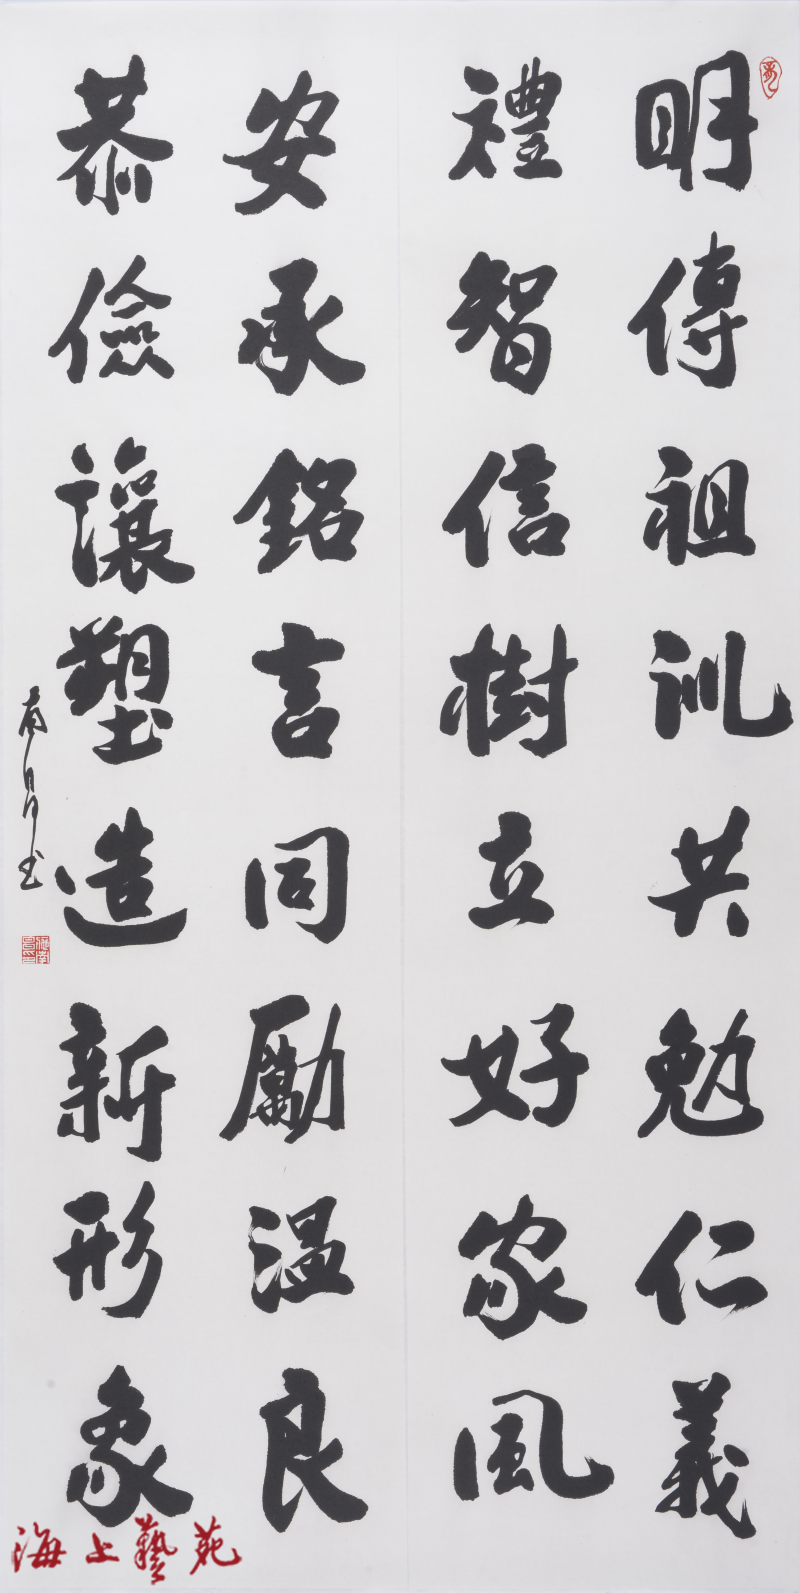 明傳祖訓共勉仁義
禮智信樹立好家風
安承銘言同勵温良
恭儉讓塑造新形象
南昌书
海上藝苑